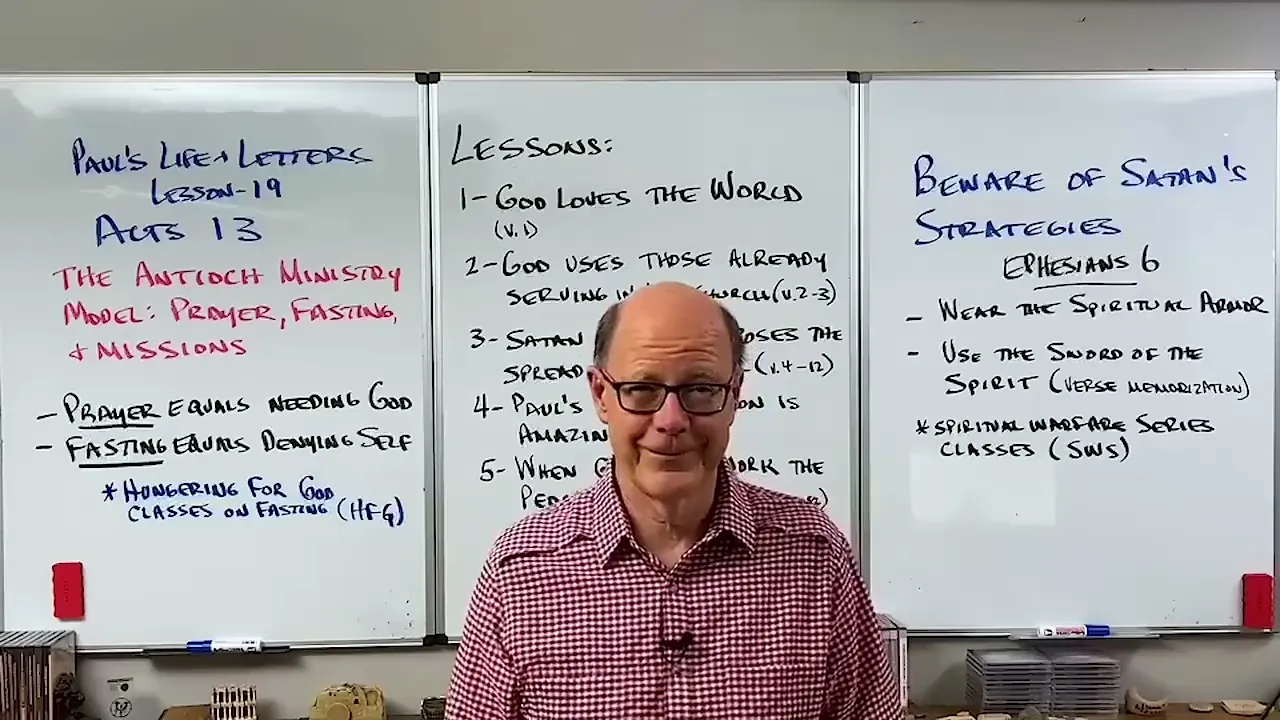 PAUL'S LIFE + LETTERS
LESSON-19
ACTS 13
THE ANTIOCH MINISTRY
MODEL: PRAYER, FASTING,
+ MISSIONS
- PRAYER EQUALS NEEDING GOD
- FASTING EQUALS DENYING SELF
* HUNGERING FOR GOD
CLASSES ON FASTING (HFG)
LESSONS:
1- GOD LOVES THE WORLD
(V.1)
2- GOD USES THOSE ALREADY
SERVING IN (V.2-3)
3- SATAN THE
SPREAD (V.4-12)
4- PAUL'S IS
5- WHEN THE
BEWARE OF SATAN'S
STRATEGIES
EPHESIANS 6
- WEAR THE SPIRITUAL ARMOR
- USE THE SWORD OF THE
SPIRIT (VERSE MEMORIZATION)
* SPIRITUAL WARFARE SERIES
CLASSES (SWS)